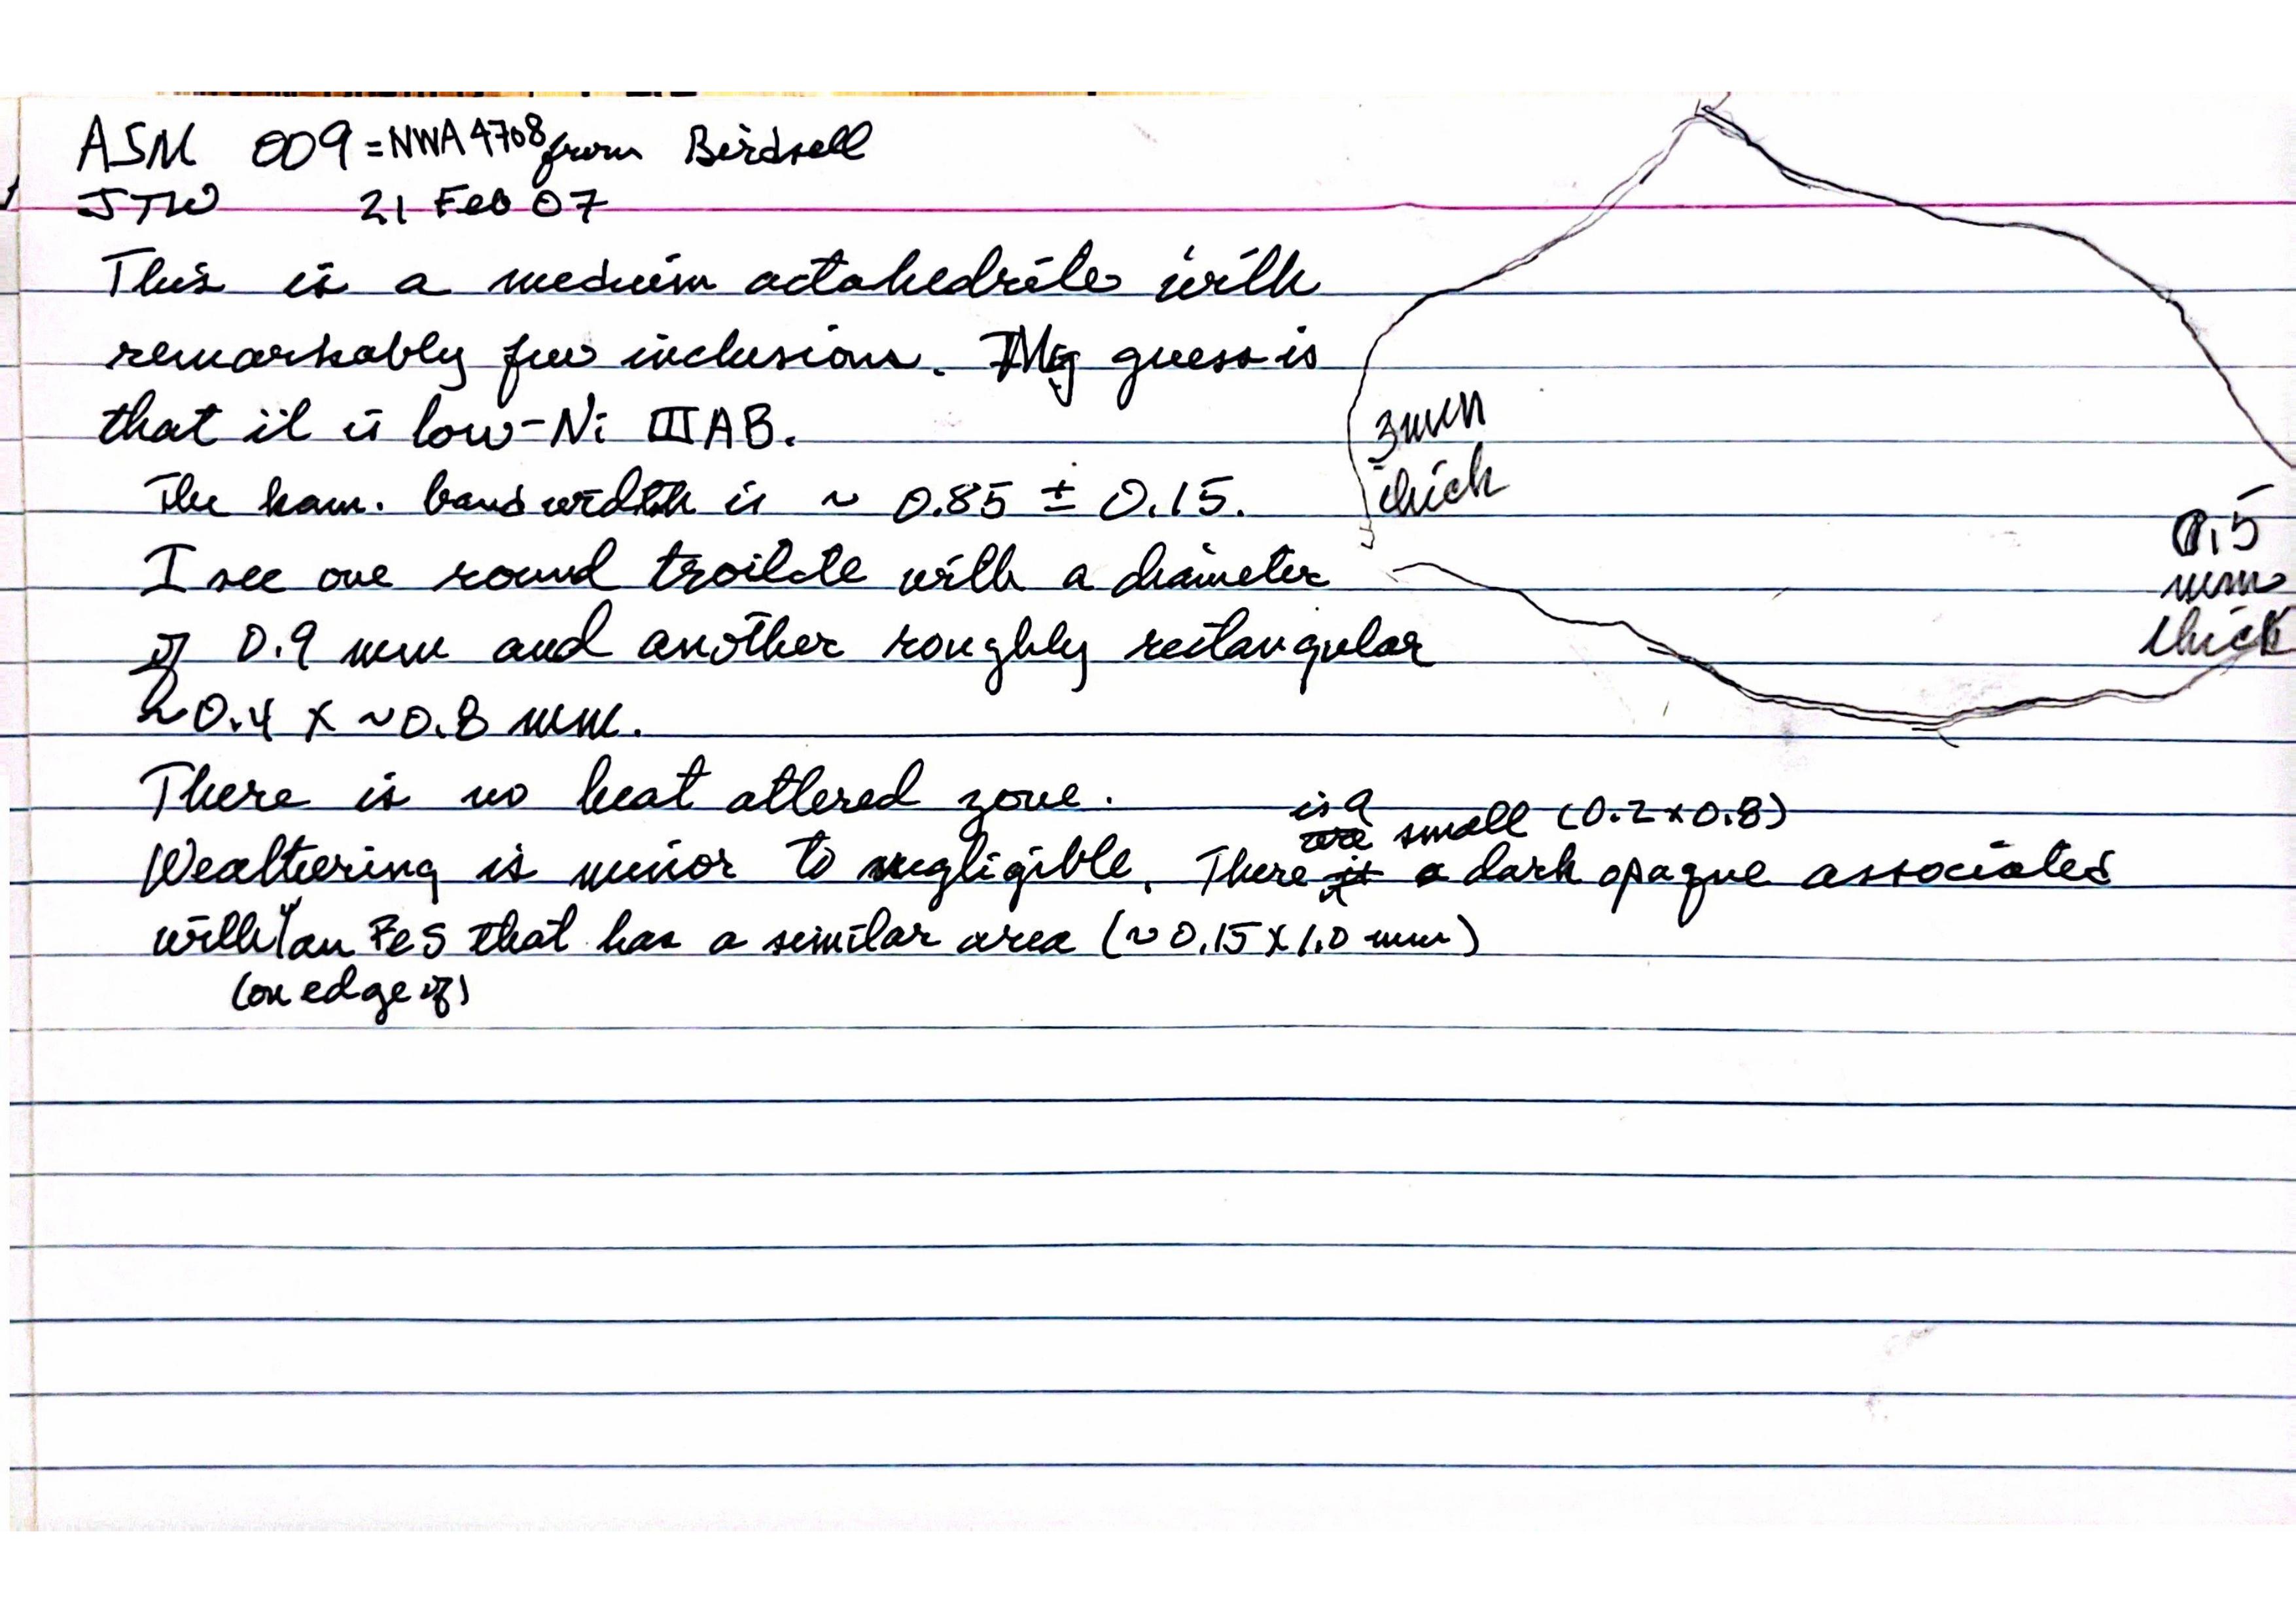 ASM 009 = NWA 4708 from Birdsell
JTW 21 Feb 07
This is a medium octahedrite with
remarkably few inclusions. My guess is
that it is low-Ni IIIAB.
The kam. bandwidth is ~ 0.85 ± 0.15.
I see one round troilite with a diameter
of 0.9 mm and another roughly rectangular
~0.4 x ~0.8 mm.
There is no heat altered zone.
is a
are small (0.2x0.8)
Weathering is minor to negligible. There is a dark opaque associated
with an FeS that has a similar area (~0.15 x 1.0 mm)
(on edge of)
3 mm
thick
0.5
mm
thick